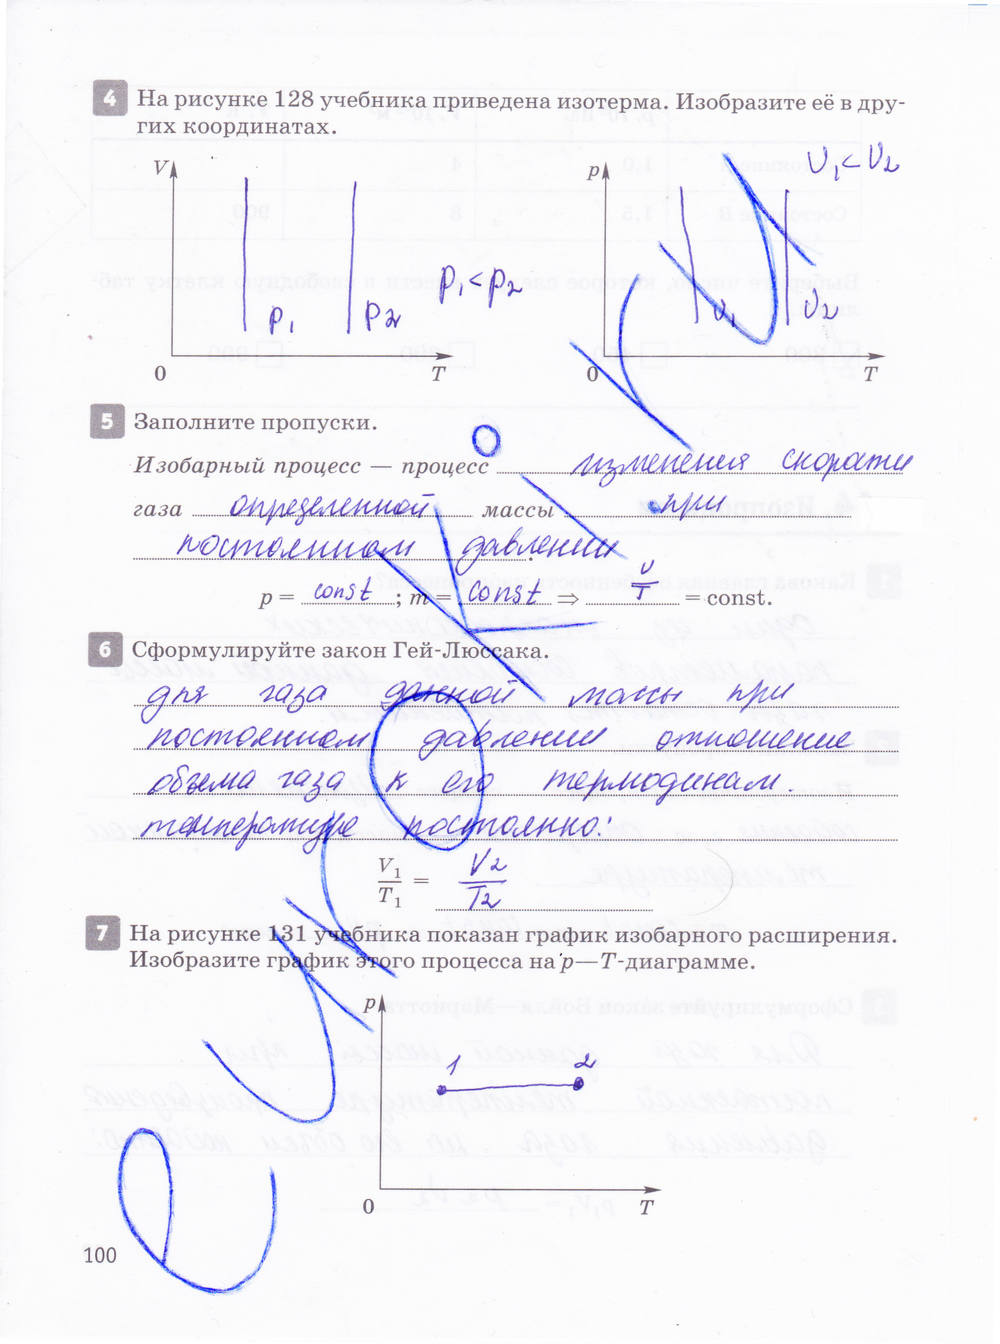 4 На рисунке 128 учебника приведена изотерма. Изобразите её в дру-
гих координатах.
V p V₁ < V₂
p₁ < p₂
p₁ p₂ V₁ V₂
0 T 0 T
5 Заполните пропуски.
Изобарный процесс — процесс изменения скорости
газа определенной массы при
постоянном давлении
p = const ; m = const ⇒ V/T = const.
6 Сформулируйте закон Гей-Люссака.
для газа данной массы при
постоянном давлении отношение
объема газа к его термодинам.
температуре постоянно:
V₁/T₁ = V₂/T₂
7 На рисунке 131 учебника показан график изобарного расширения.
Изобразите график этого процесса на p—T-диаграмме.
p
1 2
0 T
100